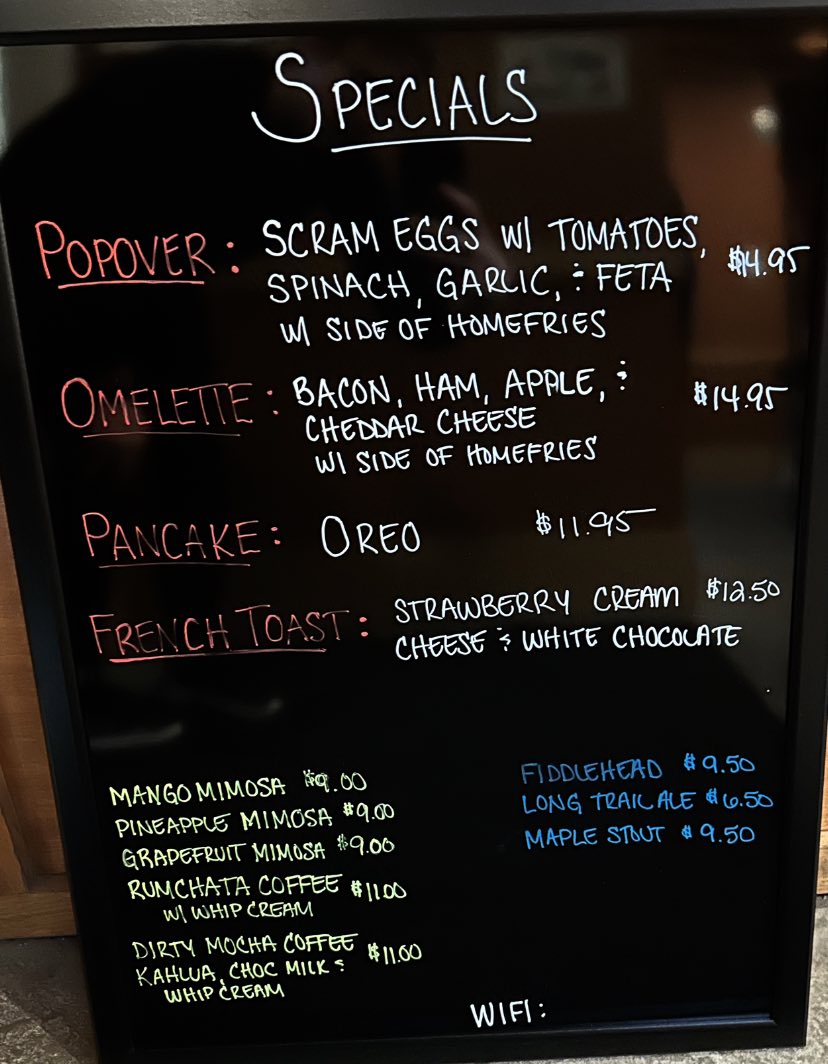 SPECIALS
POPOVER: SCRAM EGGS W/ TOMATOES, $14.95
SPINACH, GARLIC, & FETA
W/ SIDE OF HOMEFRIES
OMELETTE: BACON, HAM, APPLE, & $14.95
CHEDDAR CHEESE
W/ SIDE OF HOMEFRIES
PANCAKE: OREO $11.95
FRENCH TOAST: STRAWBERRY CREAM $12.50
CHEESE & WHITE CHOCOLATE
MANGO MIMOSA $9.00
PINEAPPLE MIMOSA $9.00
GRAPEFRUIT MIMOSA $9.00
RUMCHATA COFFEE $11.00
W/ WHIP CREAM
DIRTY MOCHA COFFEE $11.00
KAHLUA, CHOC MILK &
WHIP CREAM
FIDDLEHEAD $9.50
LONG TRAIL ALE $6.50
MAPLE STOUT $9.50
WIFI: